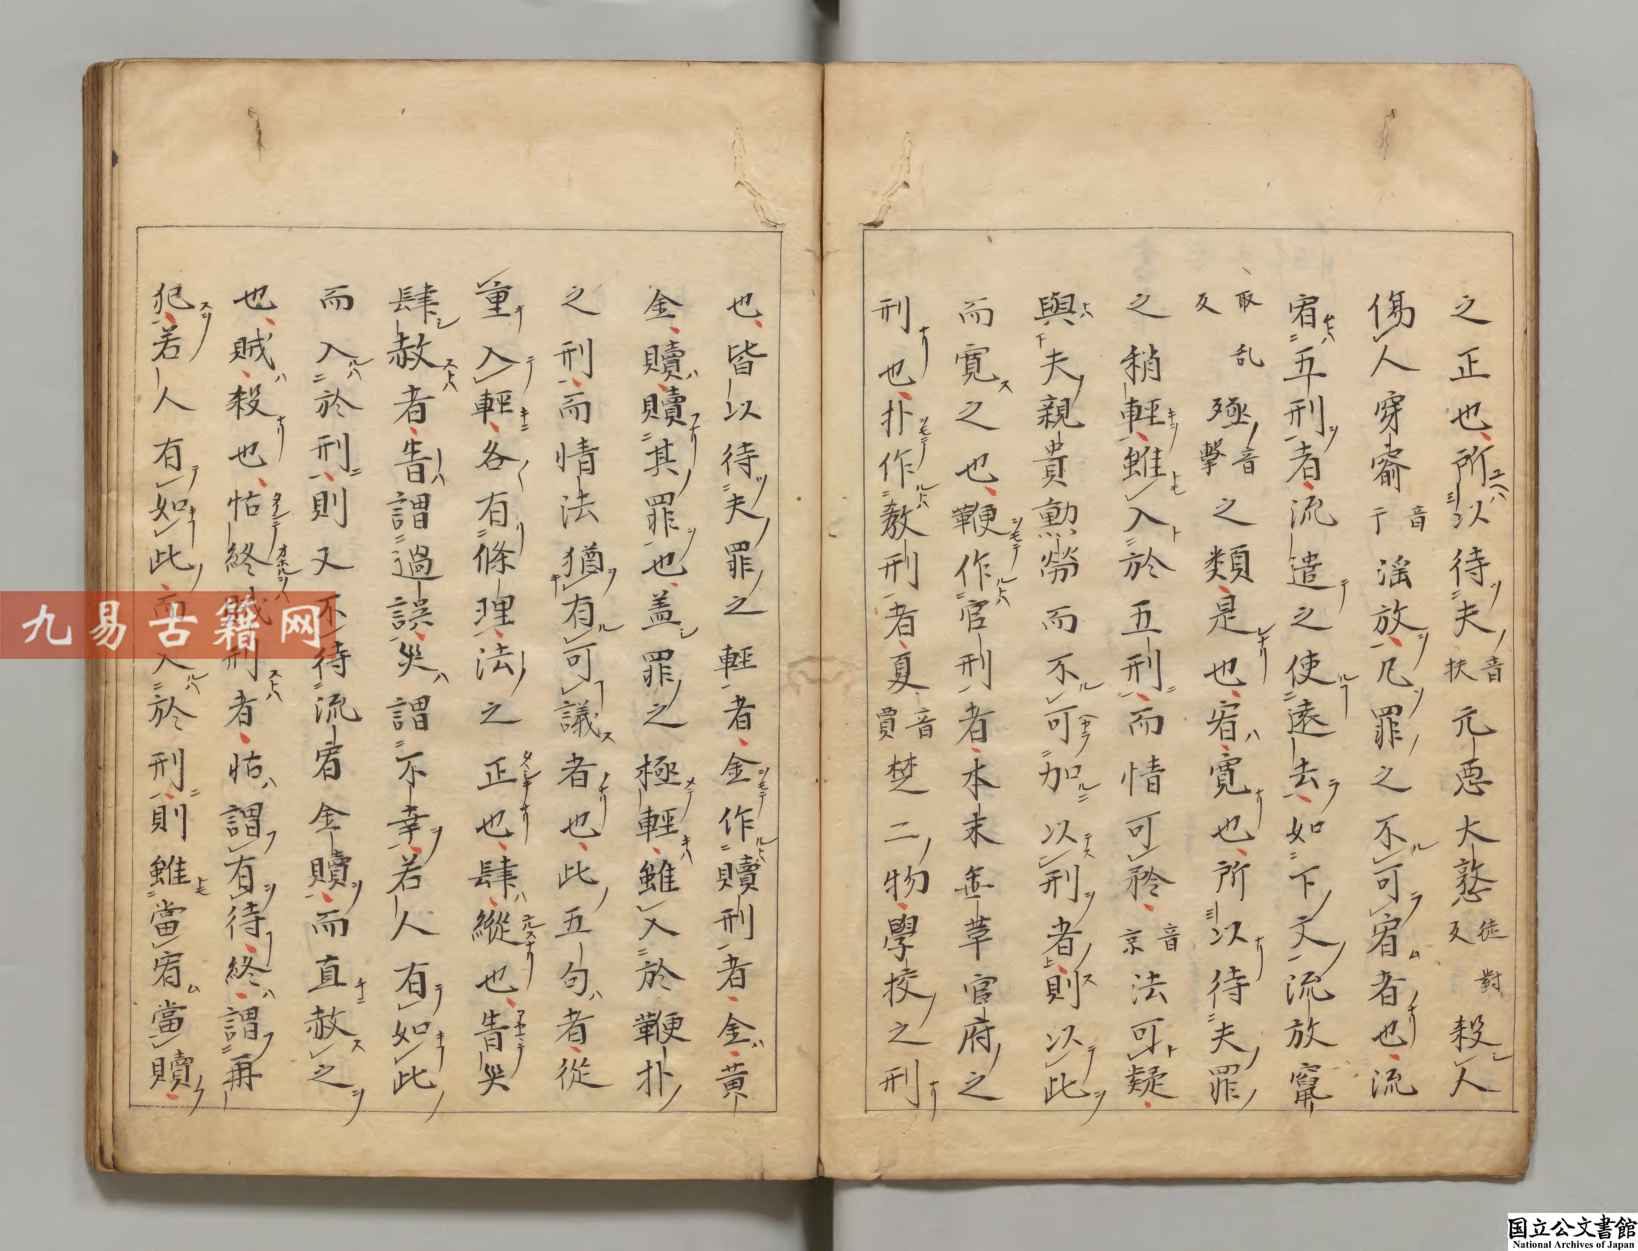 之正也所以待夫音扶元惡大憝徒對反殺人
傷人穿窬音于淫放凡罪之不可宥者也流
宥五刑者流遣之使遠去如下文流放竄
取乱反殛音撃之類是也宥寛也所以待夫罪
之稍輕雖入於五刑而情可矜音京法可疑
與夫親貴勲勞而不可加以刑者則以此
而寛之也鞭作官刑者木末垂革官府之
刑也扑作教刑者夏音賈楚二物學挍之刑
也皆以待夫罪之輕者金作贖刑者金黄
金贖贖其罪也盖罪之極輕雖入於鞭扑
之刑而情法猶有可議者也此五句者從
重入輕各有條理法之正也肆縱也眚災
肆赦者眚謂過誤災謂不幸若人有如此
而入於刑則又不待流宥金贖而直赦之
也賊殺也怙終賊刑者怙謂有待終謂再
犯若人有如此而入於刑則雖當宥當贖
九易古籍网
国立公文書館
National Archives of Japan